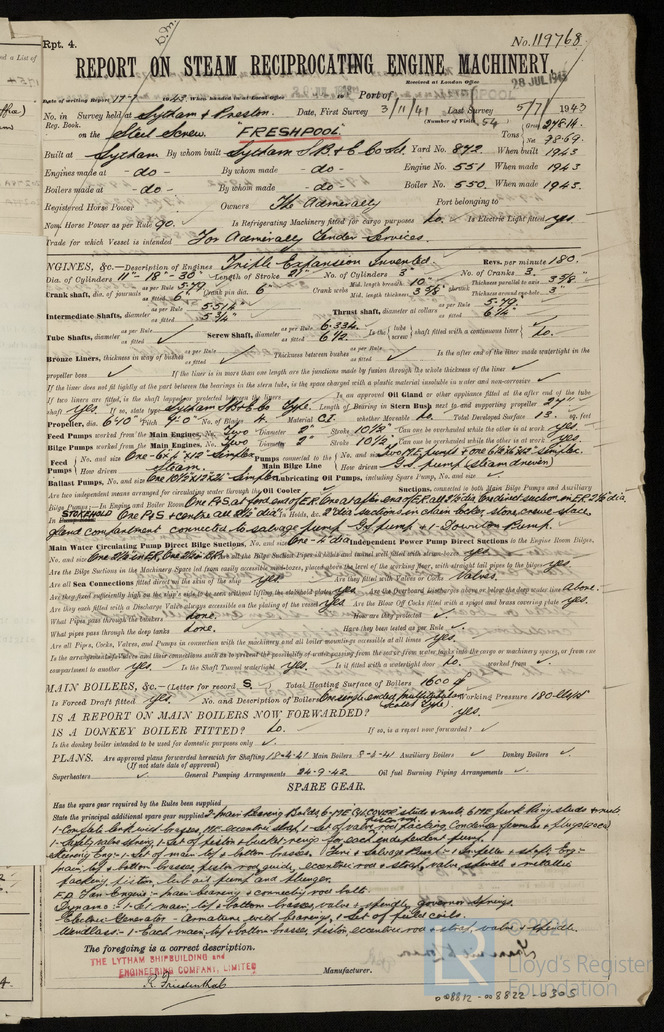 Rpt. 4.
No. 119768
REPORT ON STEAM RECIPROCATING ENGINE MACHINERY.
Received at London Office
28 JUL 1943
Date of writing Report 17-7- 1943 When handed in at Local Office 19 Port of
No. in Survey held at Lytham & Preston. Date, First Survey 3/11/41 Last Survey 5/7/ 1943
Reg. Book. (Number of Visits 54)
on the Steel Screw. "FRESHPOOL" Tons Gross 278.14. Net 98.69.
Built at Lytham By whom built Lytham S.B. & E. Co Ld. Yard No. 872. When built 1943
Engines made at -do- By whom made -do- Engine No. 551 When made 1943
Boilers made at -do- By whom made -do- Boiler No. 550. When made 1943.
Registered Horse Power Owners The Admiralty Port belonging to
Nom. Horse Power as per Rule 90. Is Refrigerating Machinery fitted for cargo purposes No. Is Electric Light fitted yes.
Trade for which Vessel is intended For Admiralty Tender Services.
ENGINES, &c.—Description of Engines Triple Expansion Inverted. Revs. per minute 180.
Dia. of Cylinders 11"-18"-30" Length of Stroke 21" No. of Cylinders 3 No. of Cranks 3.
Crank shaft, dia. of journals as per Rule 5.79 as fitted 6" Crank pin dia. 6" Crank webs Mid. length breadth 10" Mid. length thickness 3 5/8" Thickness parallel to axis 3 5/8" Thickness around eye-hole 3"
Intermediate Shafts, diameter as per Rule 5.514" as fitted 5 3/4" Thrust shaft, diameter at collars as per Rule 5.79. as fitted 6 1/4"
Tube Shafts, diameter as per Rule as fitted Screw Shaft, diameter as per Rule 6.334. as fitted 6 1/2. Is the tube screw shaft fitted with a continuous liner No.
Bronze Liners, thickness in way of bushes as per Rule as fitted Thickness between bushes as per Rule as fitted Is the after end of the liner made watertight in the
propeller boss If the liner is in more than one length are the junctions made by fusion through the whole thickness of the liner
If the liner does not fit tightly at the part between the bearings in the stern tube, is the space charged with a plastic material insoluble in water and non-corrosive
If two liners are fitted, is the shaft lapped or protected between the liners Is an approved Oil Gland or other appliance fitted at the after end of the tube
shaft Yes. If so, state type Lytham S.B. & E. Co Type. Length of Bearing in Stern Bush next to and supporting propeller 27"
Propeller, dia. 6'10" Pitch 9'0" No. of Blades 4. Material C.I. whether Moveable No. Total Developed Surface 13. sq. feet
Feed Pumps worked from the Main Engines, No. Two Diameter 2" Stroke 10 1/2" Can one be overhauled while the other is at work Yes.
Bilge Pumps worked from the Main Engines, No. Two Diameter 2" Stroke 10 1/2" Can one be overhauled while the other is at work Yes.
Feed Pumps No. and size One - 6 x 4 x 12" Simplex Pumps connected to the Main Bilge Line No. and size Two M.E. pumps & one 6 1/2 x 6 1/2 x 12" Simplex.
How driven steam. How driven G.S. pump (steam driven)
Ballast Pumps, No. and size One 10 1/2 x 12 x 24" Simplex Lubricating Oil Pumps, including Spare Pump, No. and size
Are two independent means arranged for circulating water through the Oil Cooler Suctions, connected to both Main Bilge Pumps and Auxiliary
Bilge Pumps;—In Engine and Boiler Room
STOKEHOLD One P. & S. & centre all 2 1/2" dia. In Holds, &c. 2" dia. suctions in chain locker, store, crew space,
gland compartment connected to salvage pump G.S. pump & 1 - Downton Pump.
Main Water Circulating Pump Direct Bilge Suctions, No. and size One - 4" dia Independent Power Pump Direct Suctions to the Engine Room Bilges,
Are the Bilge Suctions in the Machinery Space led from easily accessible mud-boxes, placed above the level of the working floor, with straight tail pipes to the bilges yes.
Are all Sea Connections fitted direct on the skin of the ship yes Are they fitted with Valves or Cocks Valves.
Are they fixed sufficiently high on the ship's side to be seen without lifting the stokehold plates yes Are the Overboard Discharges above or below the deep water line Above.
Are they each fitted with a Discharge Valve always accessible on the plating of the vessel yes Are the Blow Off Cocks fitted with a spigot and brass covering plate yes.
What Pipes pass through the bunkers None. How are they protected
What pipes pass through the deep tanks None. Have they been tested as per Rule
Are all Pipes, Cocks, Valves, and Pumps in connection with the machinery and all boiler mountings accessible at all times yes.
Is the arrangement of Valves and their connections such as to prevent the possibility of water passing from the sea or from water ballast into the cargo or machinery spaces, or from one
compartment to another yes. Is the Shaft Tunnel watertight yes. Is it fitted with a watertight door No. worked from
MAIN BOILERS, &c.—(Letter for record S.) Total Heating Surface of Boilers 1600 ф
Is Forced Draft fitted yes. No. and Description of Boilers One single ended Multitubular (Scotch Type). Working Pressure 180 lbs/□"
IS A REPORT ON MAIN BOILERS NOW FORWARDED? yes.
IS A DONKEY BOILER FITTED? No. If so, is a report now forwarded?
Is the donkey boiler intended to be used for domestic purposes only
PLANS. Are approved plans forwarded herewith for Shafting 18-4-41 Main Boilers 8-5-41 Auxiliary Boilers Donkey Boilers
(If not state date of approval)
Superheaters General Pumping Arrangements 24-9-42. Oil fuel Burning Piping Arrangements
SPARE GEAR.
Has the spare gear required by the Rules been supplied
State the principal additional spare gear supplied 2-Main Bearing Bolts, 6-ME CYL. COVER studs & nuts, 6 ME junk Ring studs & nuts
1-Complete link with brasses, ME eccentric strap, 1-set of valve & piston rod packing, Condenser ferrules & plugs (100)
1-Safety valve spring, 1-Set of piston & bucket rings for each independent pump.
Steering Eng:- 1-Set of main, top & bottom brasses,
main, top & bottom brasses, piston rod guide, eccentric rod & strap, valve, spindle & metallic
packing, piston, lub oil pump and plunger.
ED Fan Engine:- main bearing & connecting rod bolt.
Dynamo:- 1-Set main, top & bottom brasses, valve & spindle, governor springs.
Electric Generator - Armature with bearings, 1-Set of field coils.
Windlass:- 1-Each main, top & bottom brasses, piston, eccentric rod & strap, valve & spindle
The foregoing is a correct description.
THE LYTHAM SHIPBUILDING and
ENGINEERING COMPANY, LIMITED
R. Friedenthal
Manufacturer.
© 2021
LR
Lloyd's Register
Foundation
008812-008822-0303